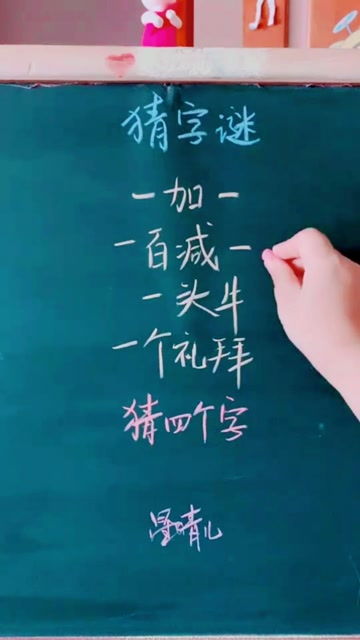 猜字谜
一加一
一百减一
一头牛
一个礼拜
猜四个字